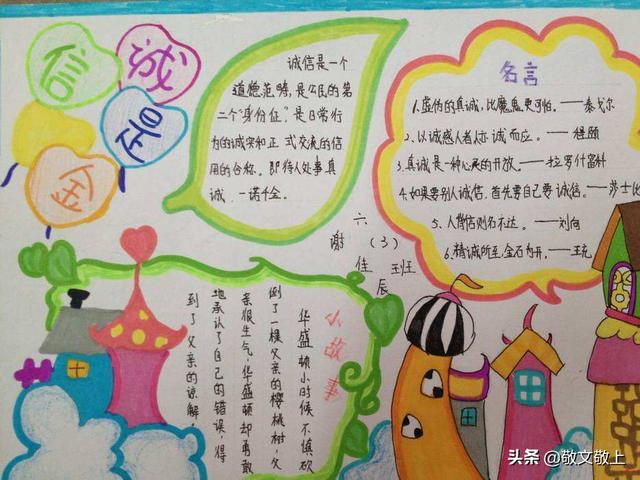 诚
信
是
金
诚信是一个
道德范畴,是公民的第
二个"身份证",是日常行
为的诚实和正式交流的信
用的合称。即待人处事真
诚、一诺千金。
名言
1.虚伪的真诚,比魔鬼更可怕。——泰戈尔
2.以诚感人者,人亦诚而应。——程颐
3.真诚是一种心灵的开放。——拉罗什富科
4.如果要别人诚信,首先要自己要诚信。——莎士比
5.人背信则名不达。——刘向
6.精诚所至,金石为开。——王充
六(3)班
谢佳辰
小故事
华盛顿小时候不慎砍
倒了一棵父亲的樱桃树,父
亲很生气,华盛顿却勇敢
地承认了自己的错误,得
到了父亲的谅解。
头条 @敬文敬上